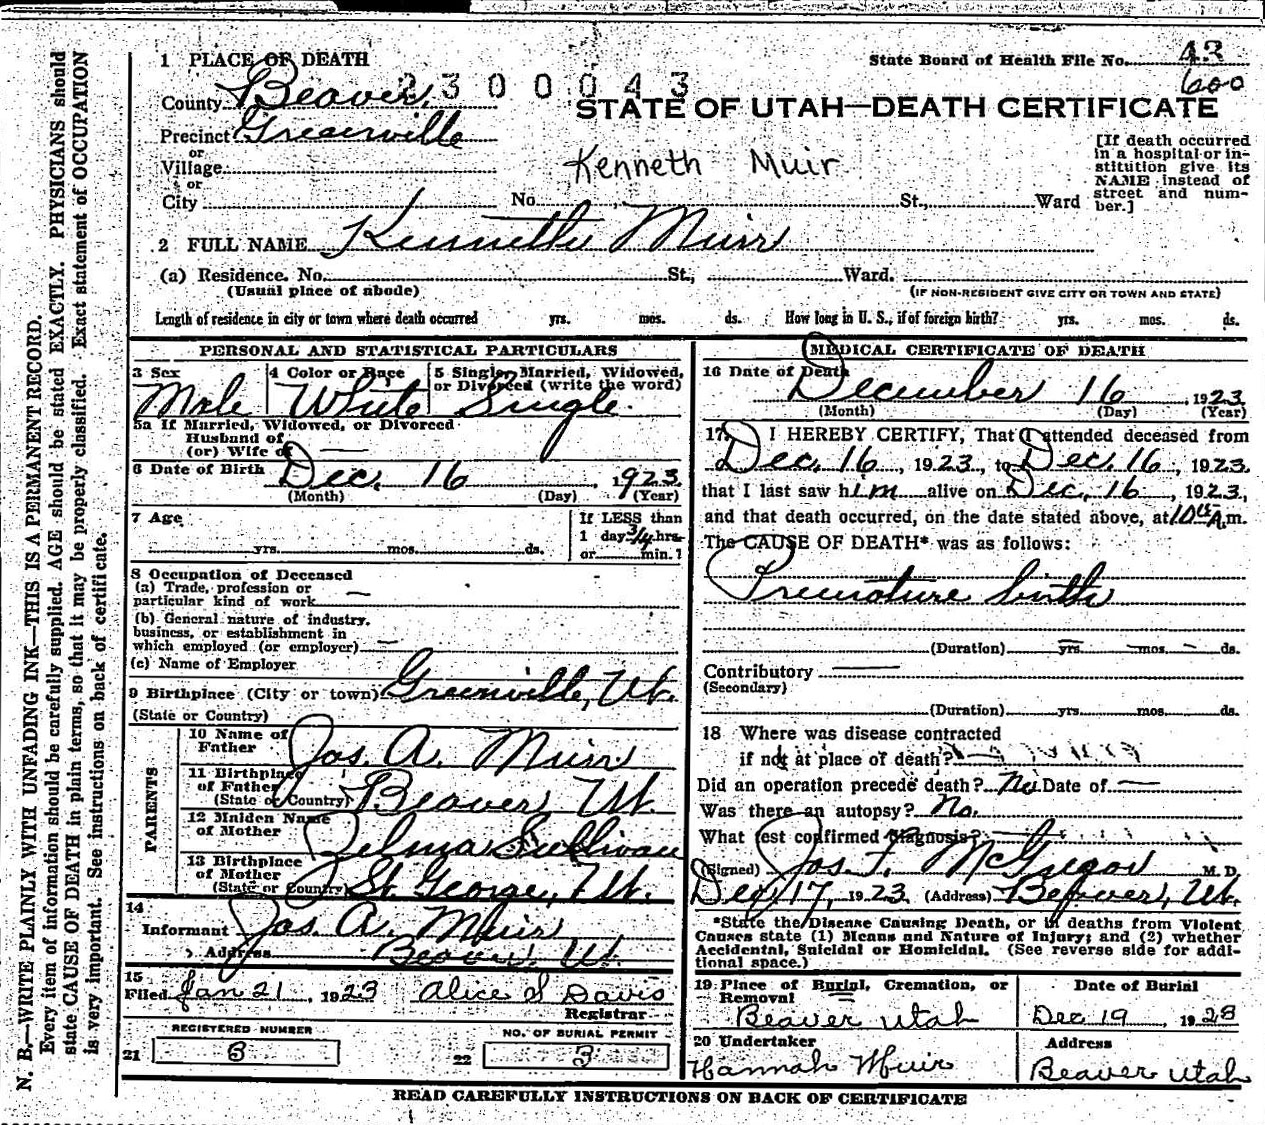 1 PLACE OF DEATH
State Board of Health File No. 43
600
2300043
County Beaver
STATE OF UTAH—DEATH CERTIFICATE
Precinct Greenville
or
Village
or
City No. St., Ward
Kenneth Muir
[If death occurred in a hospital or institution give its NAME instead of street and number.]
2 FULL NAME Kenneth Muir
(a) Residence. No. St., Ward.
(Usual place of abode)
(IF NON-RESIDENT GIVE CITY OR TOWN AND STATE)
Length of residence in city or town where death occurred yrs. mos. ds. How long in U. S., if of foreign birth? yrs. mos. ds.
PERSONAL AND STATISTICAL PARTICULARS
3 Sex 4 Color or Race 5 Single, Married, Widowed, or Divorced (write the word)
Male White Single
5a If Married, Widowed, or Divorced
Husband of
(or) Wife of —
6 Date of Birth Dec. 16 1923
(Month) (Day) (Year)
7 Age If LESS than
1 day 3/4 hrs.
yrs. mos. ds. or min.?
8 Occupation of Deceased
(a) Trade, profession or
particular kind of work —
(b) General nature of industry,
business, or establishment in
which employed (or employer) —
(c) Name of Employer
9 Birthplace (City or town) Greenville, Ut.
(State or Country)
PARENTS
10 Name of Father Jos. A. Muir
11 Birthplace of Father Beaver Ut.
(State or Country)
12 Maiden Name of Mother Zelma Sullivan
13 Birthplace of Mother St. George, Ut.
(State or Country)
14
Informant Jos. A. Muir
Address Beaver, Ut.
15
Filed Jan 21, 1923 Alice S Davis
Registrar
REGISTERED NUMBER NO. OF BURIAL PERMIT
21 3 22 3
MEDICAL CERTIFICATE OF DEATH
16 Date of Death
December 16, 1923
(Month) (Day) (Year)
17. I HEREBY CERTIFY, That I attended deceased from
Dec. 16, 1923, to Dec. 16, 1923
that I last saw him alive on Dec. 16, 1923,
and that death occurred, on the date stated above, at 10 A.m.
The CAUSE OF DEATH* was as follows:
Premature birth
(Duration) yrs. mos. ds.
Contributory —
(Secondary)
(Duration) yrs. mos. ds.
18 Where was disease contracted
if not at place of death?
Did an operation precede death? No. Date of —
Was there an autopsy? No.
What test confirmed diagnosis?
(Signed) Jos. F. McGregor M. D.
Dec 17, 1923 (Address) Beaver, Ut.
*State the Disease Causing Death, or in deaths from Violent
Causes state (1) Means and Nature of Injury; and (2) whether
Accidental, Suicidal or Homicidal. (See reverse side for additional space.)
19 Place of Burial, Cremation, or Removal Date of Burial
Beaver Utah Dec 19, 1923
20 Undertaker Address
Hannah Muir Beaver Utah
READ CAREFULLY INSTRUCTIONS ON BACK OF CERTIFICATE
N. B.—WRITE PLAINLY WITH UNFADING INK—THIS IS A PERMANENT RECORD.
Every item of information should be carefully supplied. AGE should be stated EXACTLY. PHYSICIANS should
state CAUSE OF DEATH in plain terms, so that it may be properly classified. Exact statement of OCCUPATION
is very important. See instructions on back of certificate.